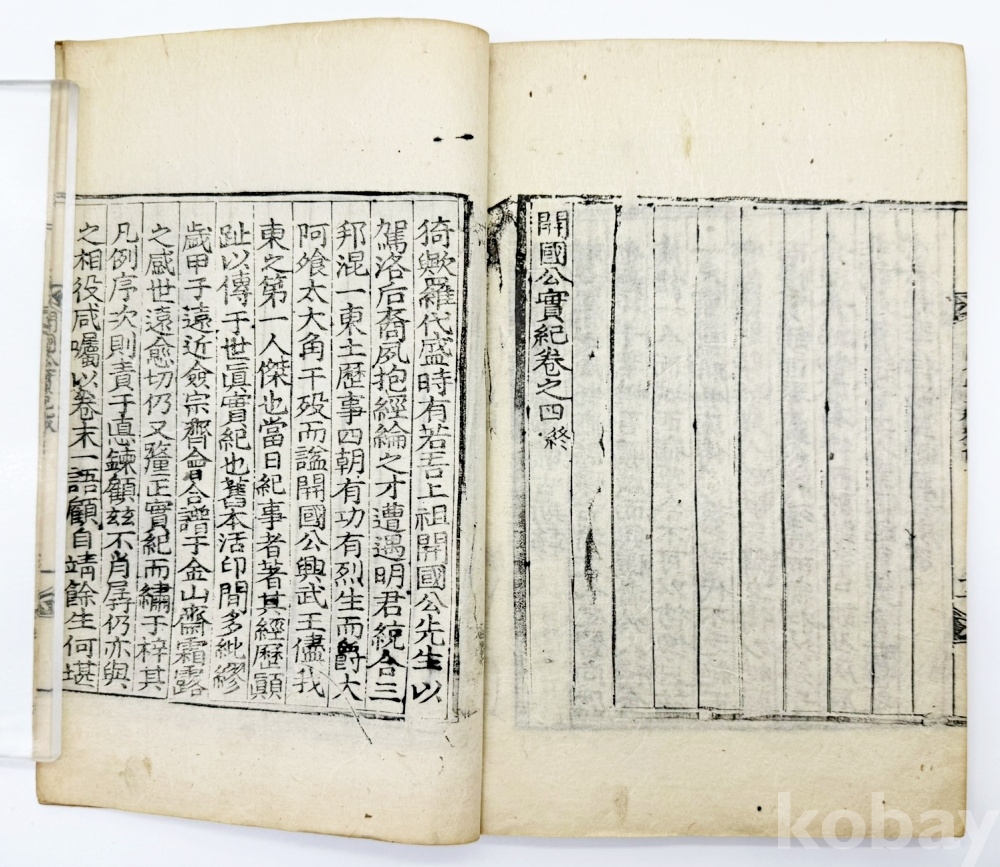 開國公實紀卷之四 終
猗歟羅代盛時有若吾上祖開國公先生以
駕洛后裔夙抱經綸之才遭遇明君統合三
邦混一東土歷事四朝有功有烈生而爵大
阿飡太大角干歿而諡開國公興武王儘我
東之第一人傑也當日紀事者著其經歷顚
趾以傳于世眞實紀也舊本活印間多紕繆
歲甲子遠近僉宗齊會合謄于金山齋霜露
之感世遠愈切仍又釐正實紀而繡于梓其
凡例序次則責于惪鍊顧玆不肖孱仍亦與
之相役咸囑以卷末一語顧自靖餘生何堪
kobay